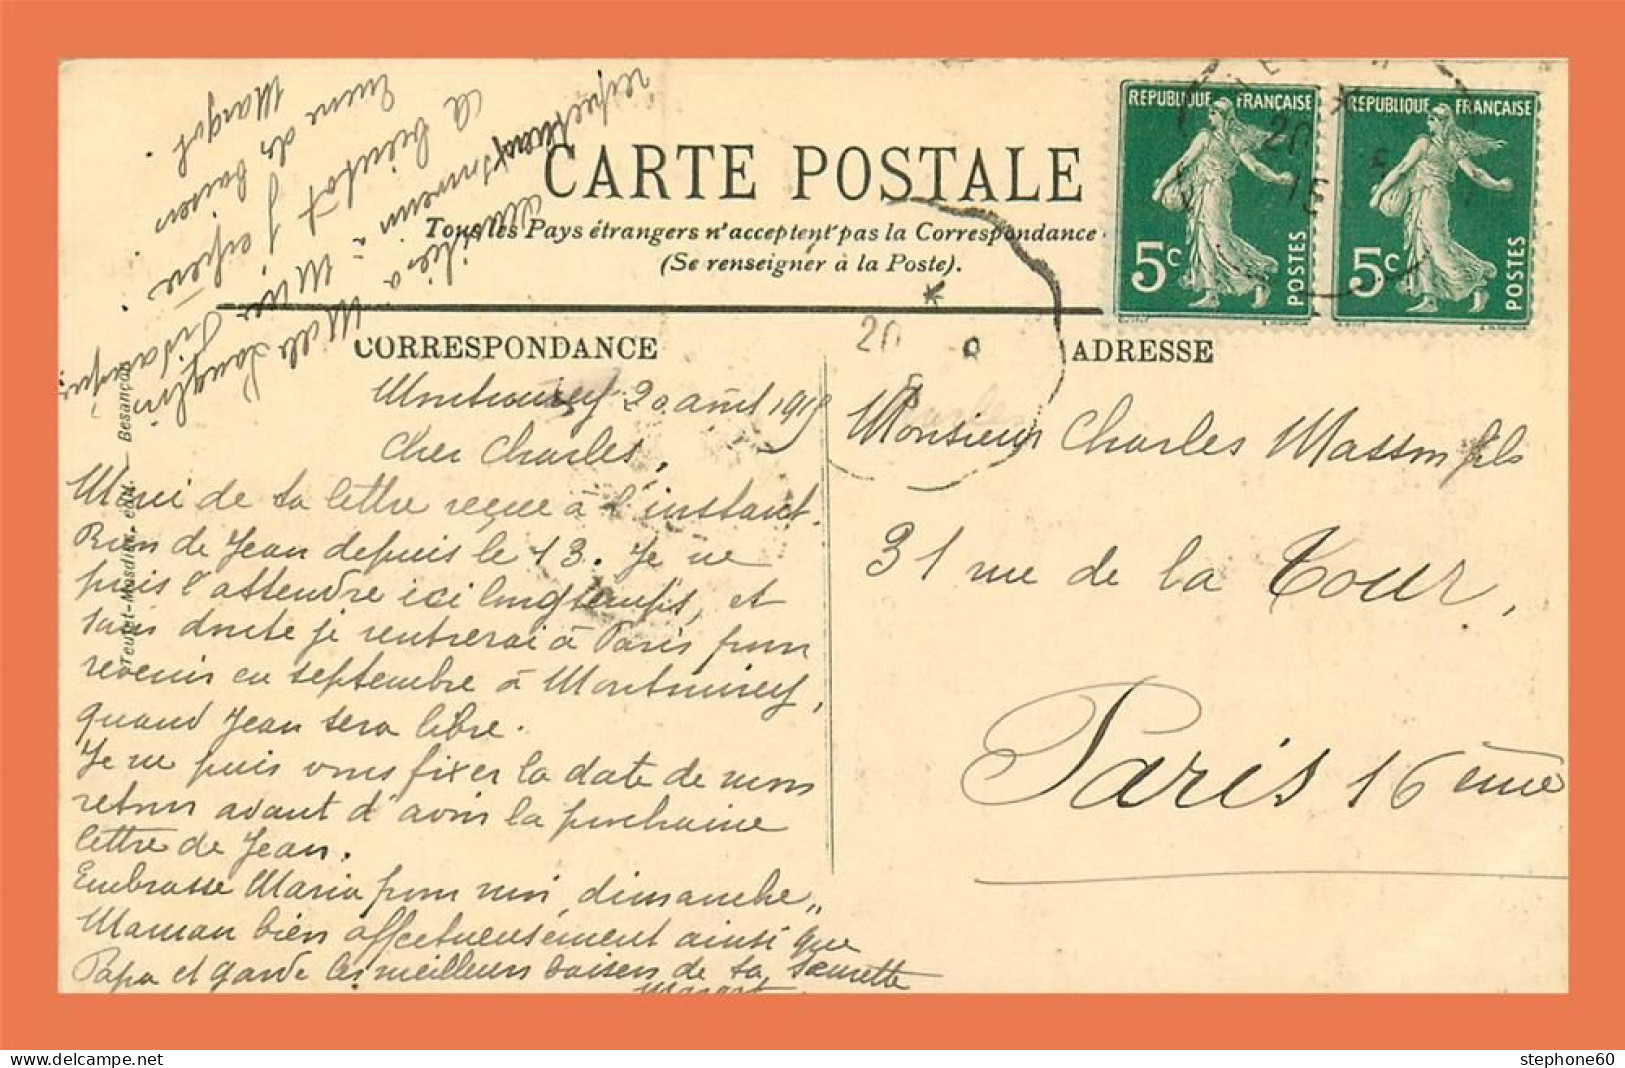 CARTE POSTALE
Tous les Pays étrangers n'acceptent pas la Correspondance
(Se renseigner à la Poste).
REPUBLIQUE FRANÇAISE
5c POSTES
REPUBLIQUE FRANÇAISE
5c POSTES
20
15
20
CORRESPONDANCE
20 août 1915
Cher Charles,
Merci de ta lettre reçue à l'instant.
Rien de Jean depuis le 13. Je ne
puis l'attendre ici longtemps, et
sans doute je rentrerai à Paris pour
revenir en septembre à Montmirey,
quand Jean sera libre.
Je ne puis vous fixer la date de mon
retour avant d'avoir la prochaine
lettre de Jean.
Embrasse Maria pour moi, dimanche,,
Maman bien affectueusement ainsi que
Papa et garde les meilleurs baisers de ta sœurette
Margot
respectueux souvenir à Mme
A bientôt j'espère
Encore de baisers
Margot.
ADRESSE
Monsieur Charles Masson fils
31 rue de la Tour,
Paris 16ème
Teulet-Mosdier, édit. Besançon
stephone60